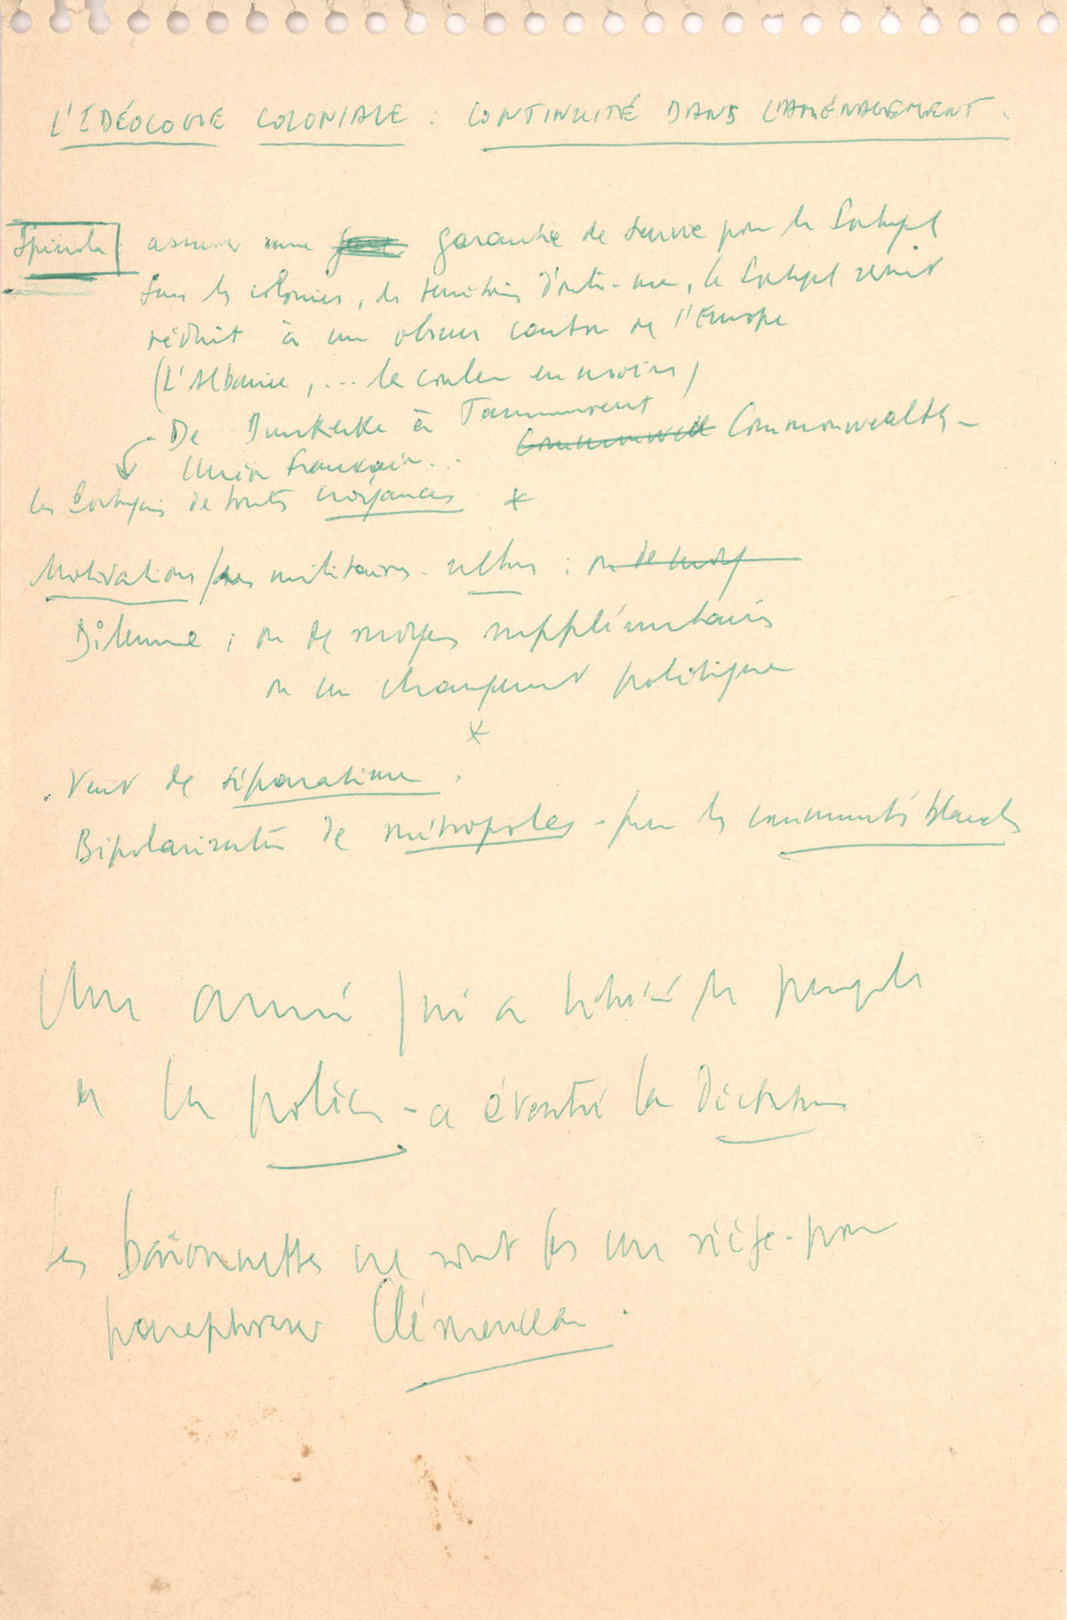 L'IDÉOLOGIE COLONIALE : CONTINUITÉ DANS L'AMÉNAGEMENT.
Spinola : assurer une garantie de survie pour le Portugal
Sans les colonies, les territoires d'outre-mer, le Portugal serait
réduit à un obscur canton de l'Europe
(L'Albanie, ... la couleur en moins)
De Dunkerke à Tamanrasset
Commonwealth Commonwealth -
Union française...
les Portugais de toutes croyances *
Motivations des militaires - ultras : ou de moy
Dilemme : ou de moyens supplémentaires
ou un changement politique
*
. Vent de séparatisme .
Bipolarisation de métropoles - pour les communautés blanches
Une armée qui a libéré le peuple
et la police - a éventré la Dictature
Les baïonnettes ne sont pas un siège - pour
paraphraser Clémenceau .